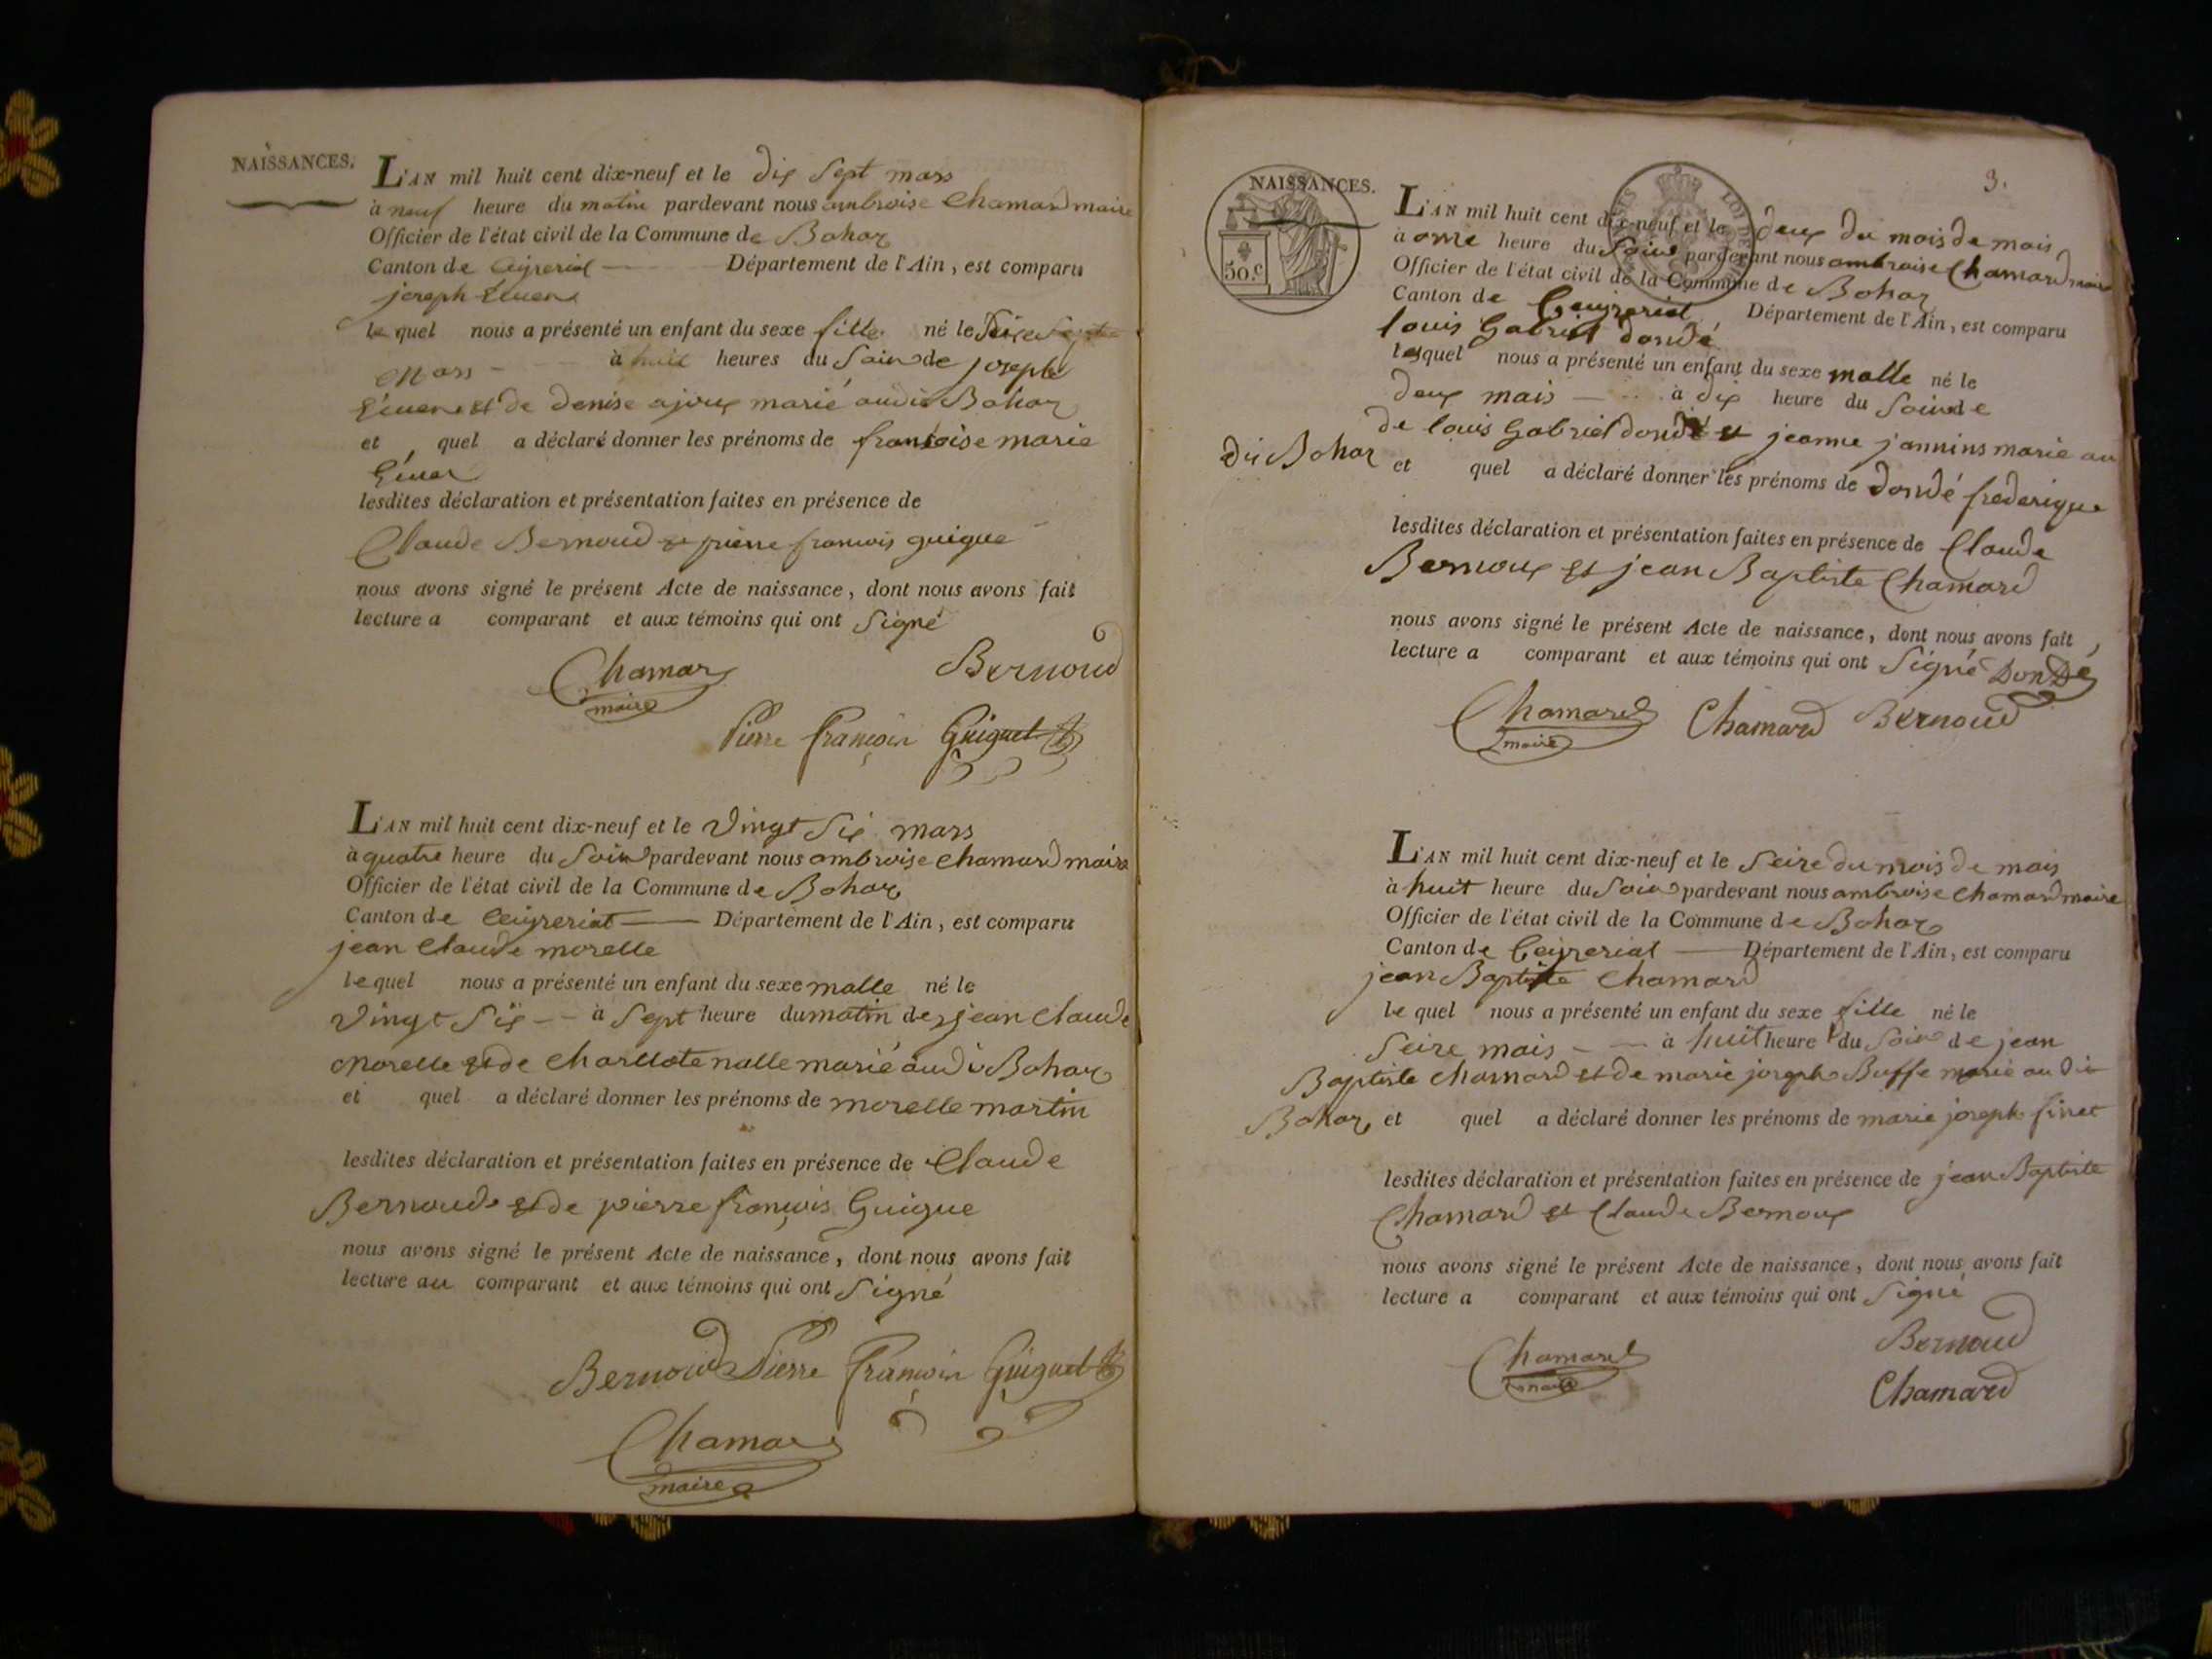 NAISSANCES.
L'AN mil huit cent dix-neuf et le dix Sept mars
à neuf heure du matin pardevant nous ambroise Chamard maire
Officier de l'état civil de la Commune de Bohaz
Canton de Ceizeriat Département de l'Ain, est comparu
joseph
le quel nous a présenté un enfant du sexe fille né le Seize
mars à huit heures du Soir de joseph
et de denise ajoux marié audit Bohaz
et quel a déclaré donner les prénoms de francoise marie
lesdites déclaration et présentation faites en présence de
Claude Bernoud et pierre francois guigue
nous avons signé le présent Acte de naissance, dont nous avons fait
lecture a comparant et aux témoins qui ont Signé
Chamard Bernoud
maire
Pierre françois Guiguet
L'AN mil huit cent dix-neuf et le vingt Six mars
à quatre heure du Soir pardevant nous ambroise Chamard maire
Officier de l'état civil de la Commune de Bohaz
Canton de Ceizeriat Département de l'Ain, est comparu
jean Claude morelle
le quel nous a présenté un enfant du sexe malle né le
vingt Six à Sept heure du matin de jean Claude
Morelle et de Charllote nalle marié audit Bohaz
et quel a déclaré donner les prénoms de morelle martin
lesdites déclaration et présentation faites en présence de Claude
Bernoud et de pierre françois Guigue
nous avons signé le présent Acte de naissance, dont nous avons fait
lecture au comparant et aux témoins qui ont Signé
Bernoud Pierre françois Guiguet
Chamard
maire
3.
NAISSANCES.
50.c
L'AN mil huit cent dix-neuf et le deux du mois de mais
à onze heure du Soir pardevant nous ambroise Chamard maire
Officier de l'état civil de la Commune de Bohaz
Canton de Ceizeriat Département de l'Ain, est comparu
louis Gabriel dondé
lequel nous a présenté un enfant du sexe malle né le
deux mais à dix heure du Soir de
de louis Gabriel dondé et jeanne jannins marié au
dit Bohaz et quel a déclaré donner les prénoms de dondé frederique
lesdites déclaration et présentation faites en présence de Claude
Bernoux et jean Baptiste Chamard
nous avons signé le présent Acte de naissance, dont nous avons fait
lecture a comparant et aux témoins qui ont Signé DonDé
Chamard Chamard Bernoud
maire
L'AN mil huit cent dix-neuf et le Seize du mois de mais
à huit heure du Soir pardevant nous ambroise Chamard maire
Officier de l'état civil de la Commune de Bohaz
Canton de Ceizeriat Département de l'Ain, est comparu
jean Baptiste Chamard
le quel nous a présenté un enfant du sexe fille né le
Seize mais à huit heure du Soir de jean
Baptiste Chamard et de marie joseph Buffe marié au dit
Bohaz et quel a déclaré donner les prénoms de marie joseph
lesdites déclaration et présentation faites en présence de jean Baptiste
Chamard et Claude Bernoux
nous avons signé le présent Acte de naissance, dont nous avons fait
lecture a comparant et aux témoins qui ont Signé
Bernoud
Chamard
maire
Chamard